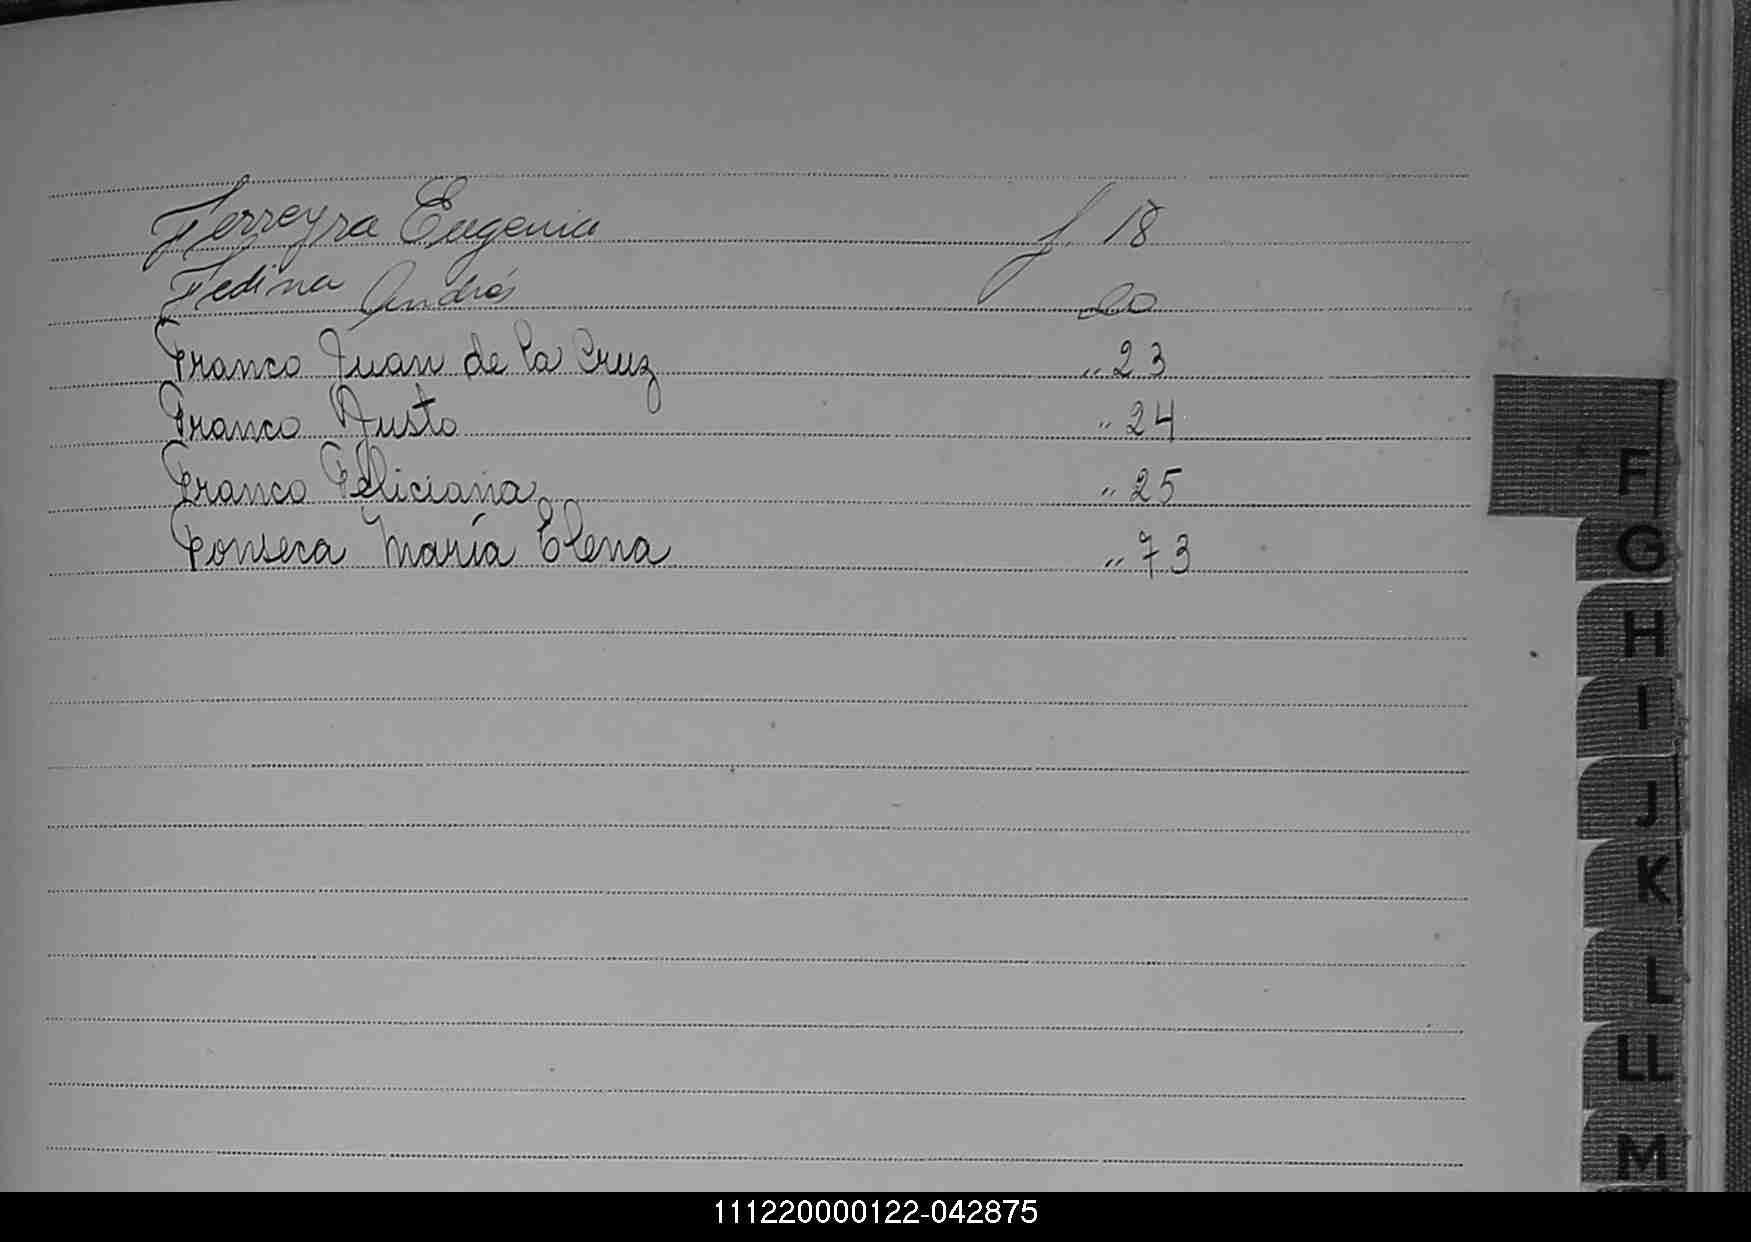 Ferreyra Eugenia f 18
Fedina Andrés 20
Franco Juan de la Cruz " 23
Franco Justo " 24
Franco Feliciana " 25
Fonseca María Elena " 73
F
G
H
I
J
K
L
LL
M
111220000122-042875